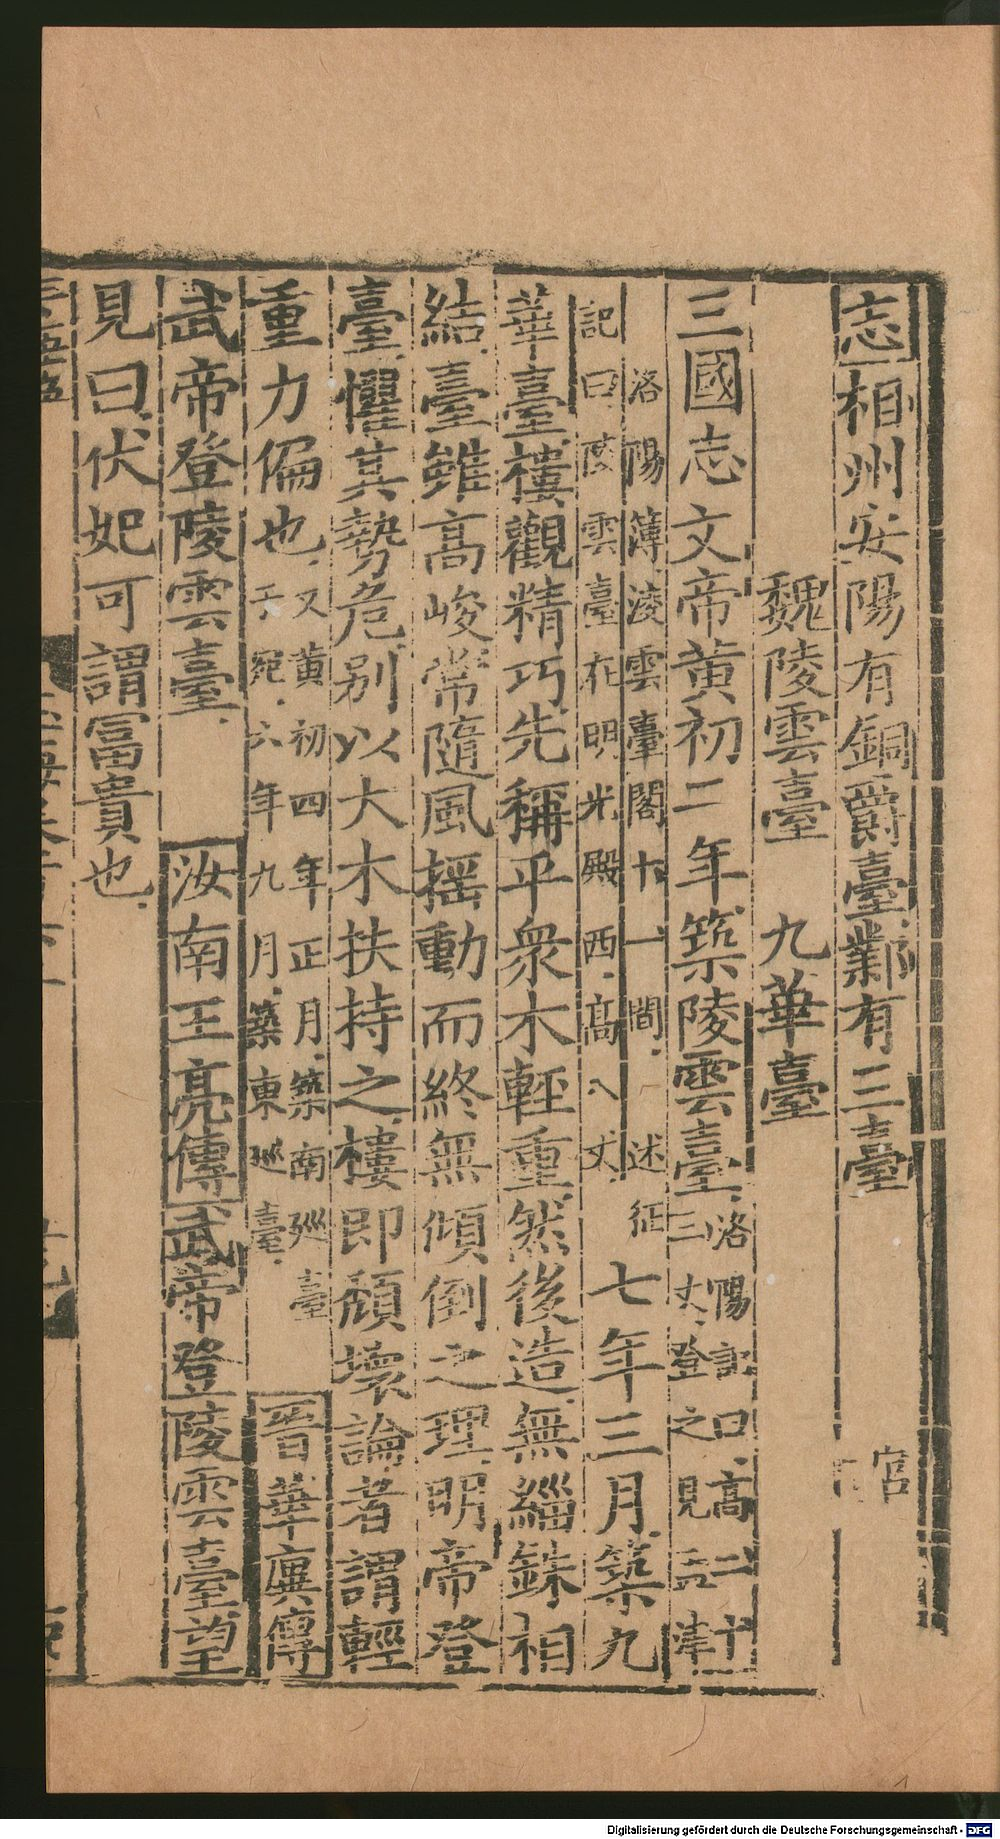 志相州安陽有銅爵臺鄴有三臺
宮
魏陵雲臺　九華臺
三國志文帝黃初二年築陵雲臺洛陽記曰高二十三丈登之見孟津
洛陽簿凌雲臺閣十一間述征
記曰陵雲臺在明光殿西高八丈七年三月築九
華臺樓觀精巧先稱平衆木輕重然後造無緇銖相
結臺雖高峻常隨風搖動而終無傾倒之理明帝登
臺懼其勢危別以大木扶持之樓即頹壞論者謂輕
重力偏也又黃初四年正月築南巡臺于宛六年九月築東巡臺晉華廙傳
武帝登陵雲臺汝南王亮傳武帝登陵雲臺望
見曰伏妃可謂富貴也
Digitalisierung gefördert durch die Deutsche Forschungsgemeinschaft - DFG